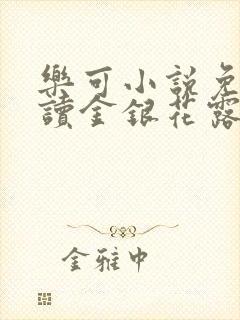 樂可小說免
讀金銀花露
金雅中